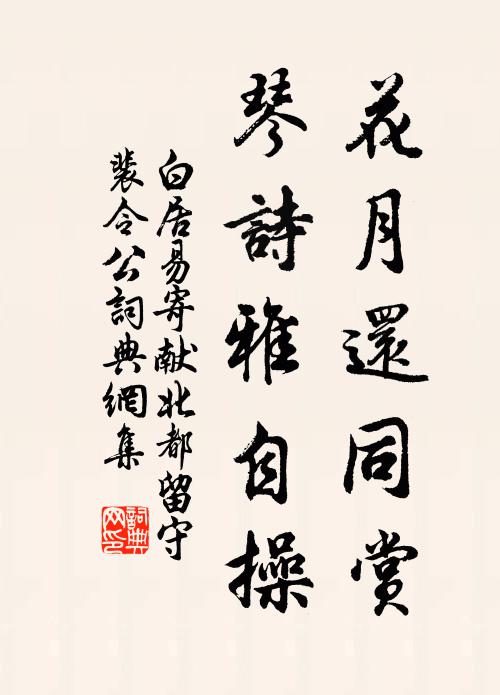 花月還同賞
琴詩雅自操
白居易寄献北都留守
裴令公詞典網集
詞典
网印